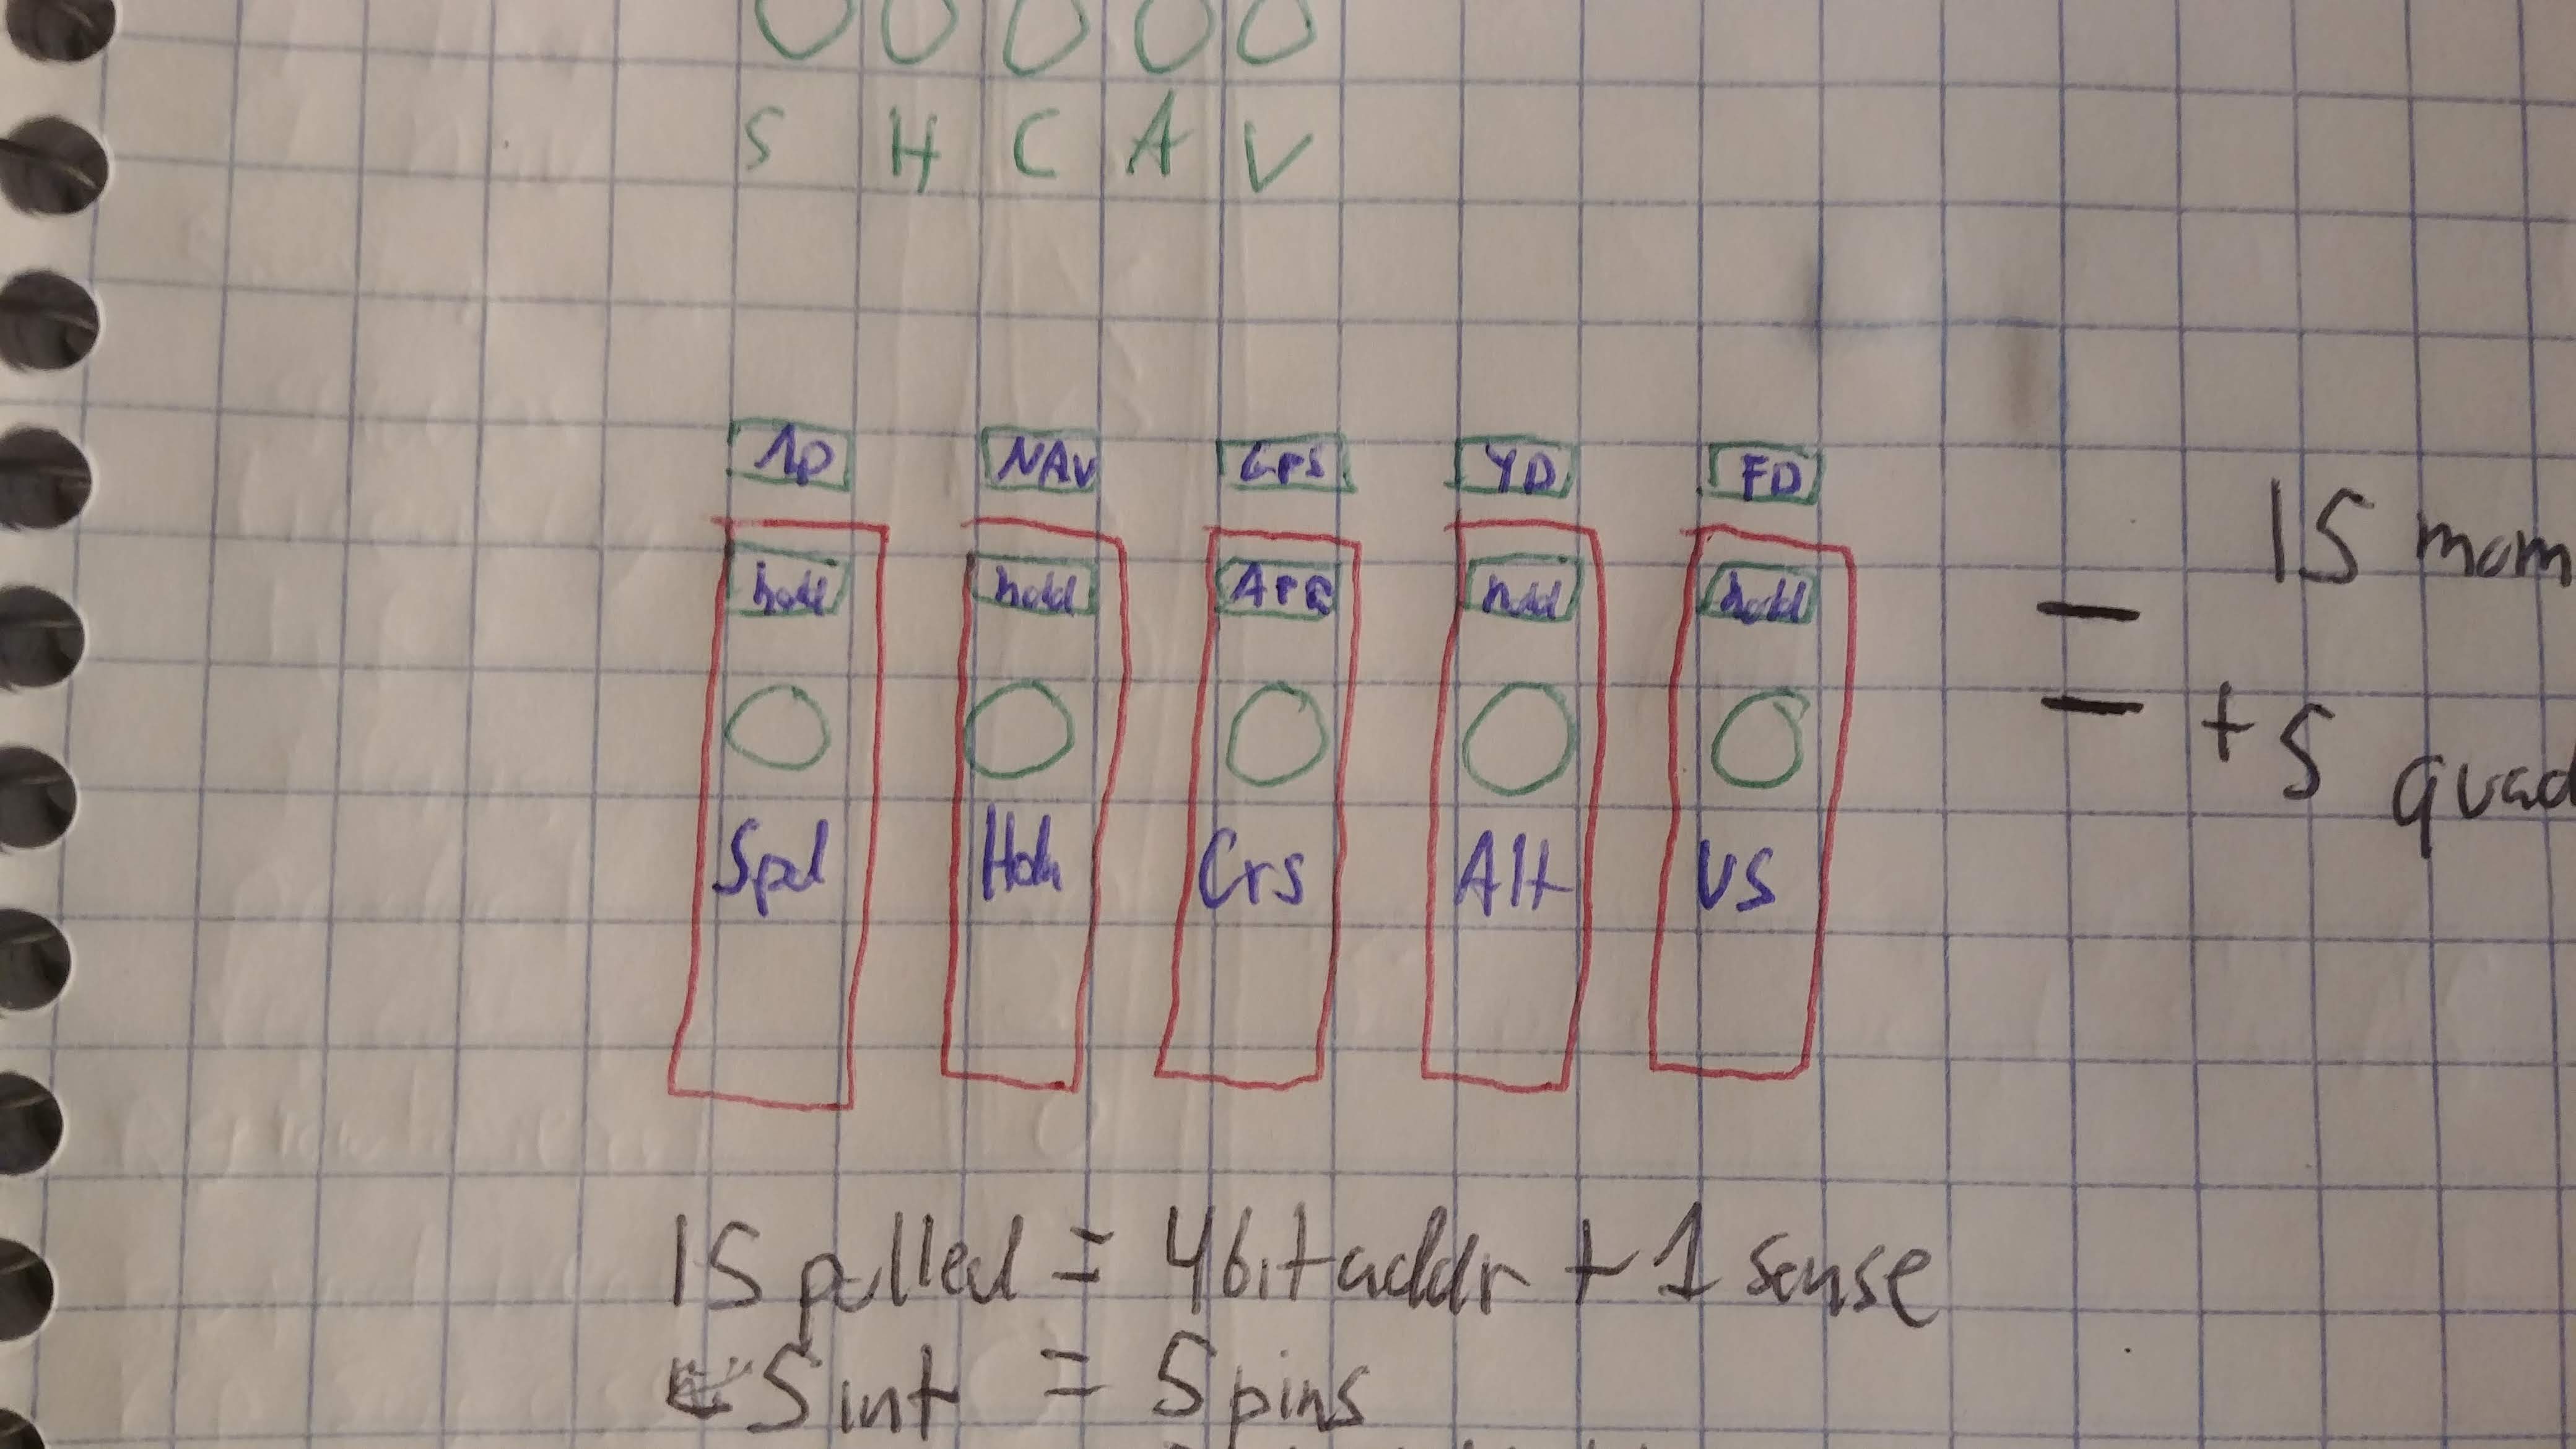 S H C A V
AP NAV GPS YD FD
hold hold APR hold hold
15 mom
Spd Hdg Crs Alt VS
+5 quad
15 pulled = 4bit addr + 1 sense
5 int = 5 pins